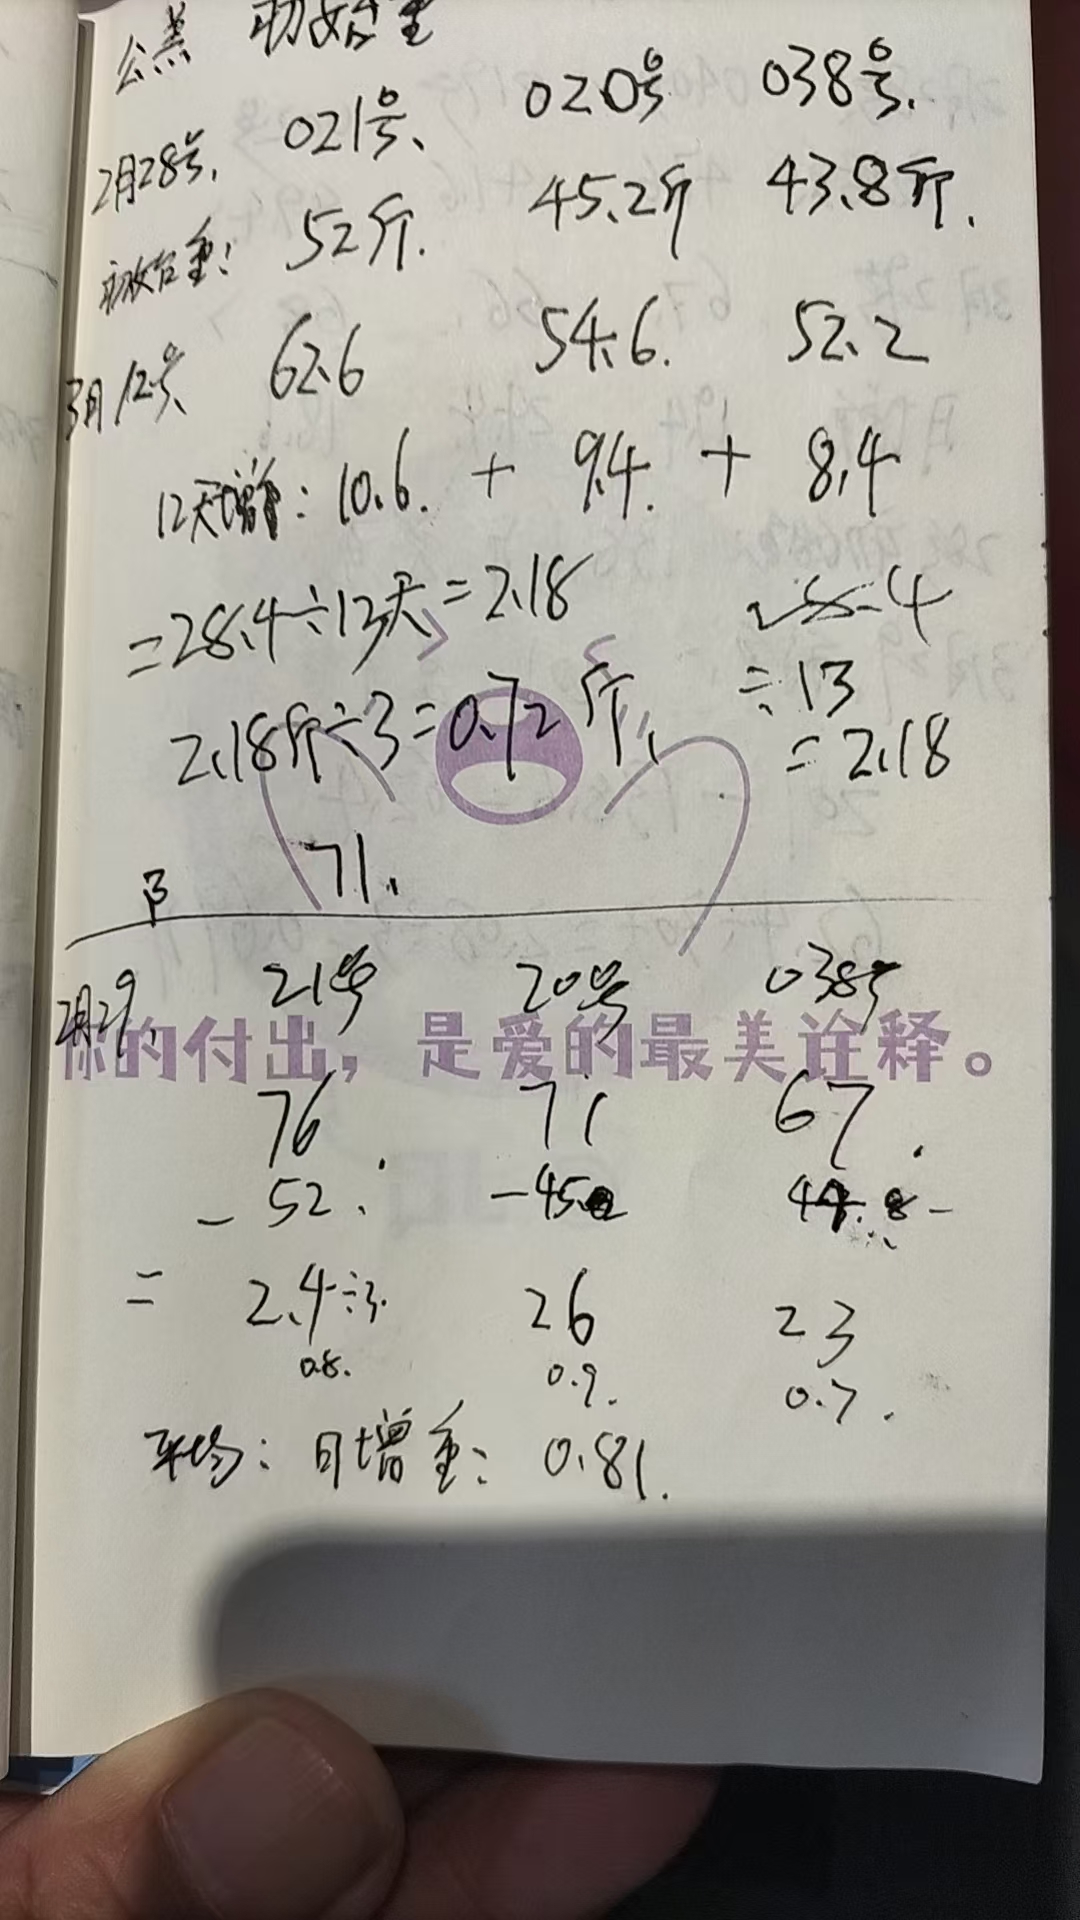 公羔 初始重
2月28号. 021号、 020号 038号.
初始重: 52斤. 45.2斤 43.8斤.
3月12号 62.6 54.6. 52.2
12天增重: 10.6. + 9.4. + 8.4
=28.4÷13天=2.18
2.18斤÷3=0.72斤.
28.4
÷13
=2.18
71.
2月29. 21号 20号 038号
你的付出，是爱的最美诠释。
76. 71 67.
-52. -45 -
= 2.4÷3. 26 23
0.8. 0.9. 0.7.
平均: 日增重: 0.81.